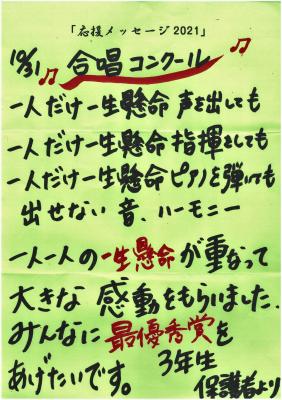 「応援メッセージ2021」
10/31 合唱コンクール
一人だけ一生懸命 声を出しても
一人だけ一生懸命 指揮をしても
一人だけ一生懸命 ピアノを弾いても
出せない 音、ハーモニー
一人一人の一生懸命が重なって
大きな 感動をもらいました。
みんなに 最優秀賞を
あげたいです。 3年生
保護者より